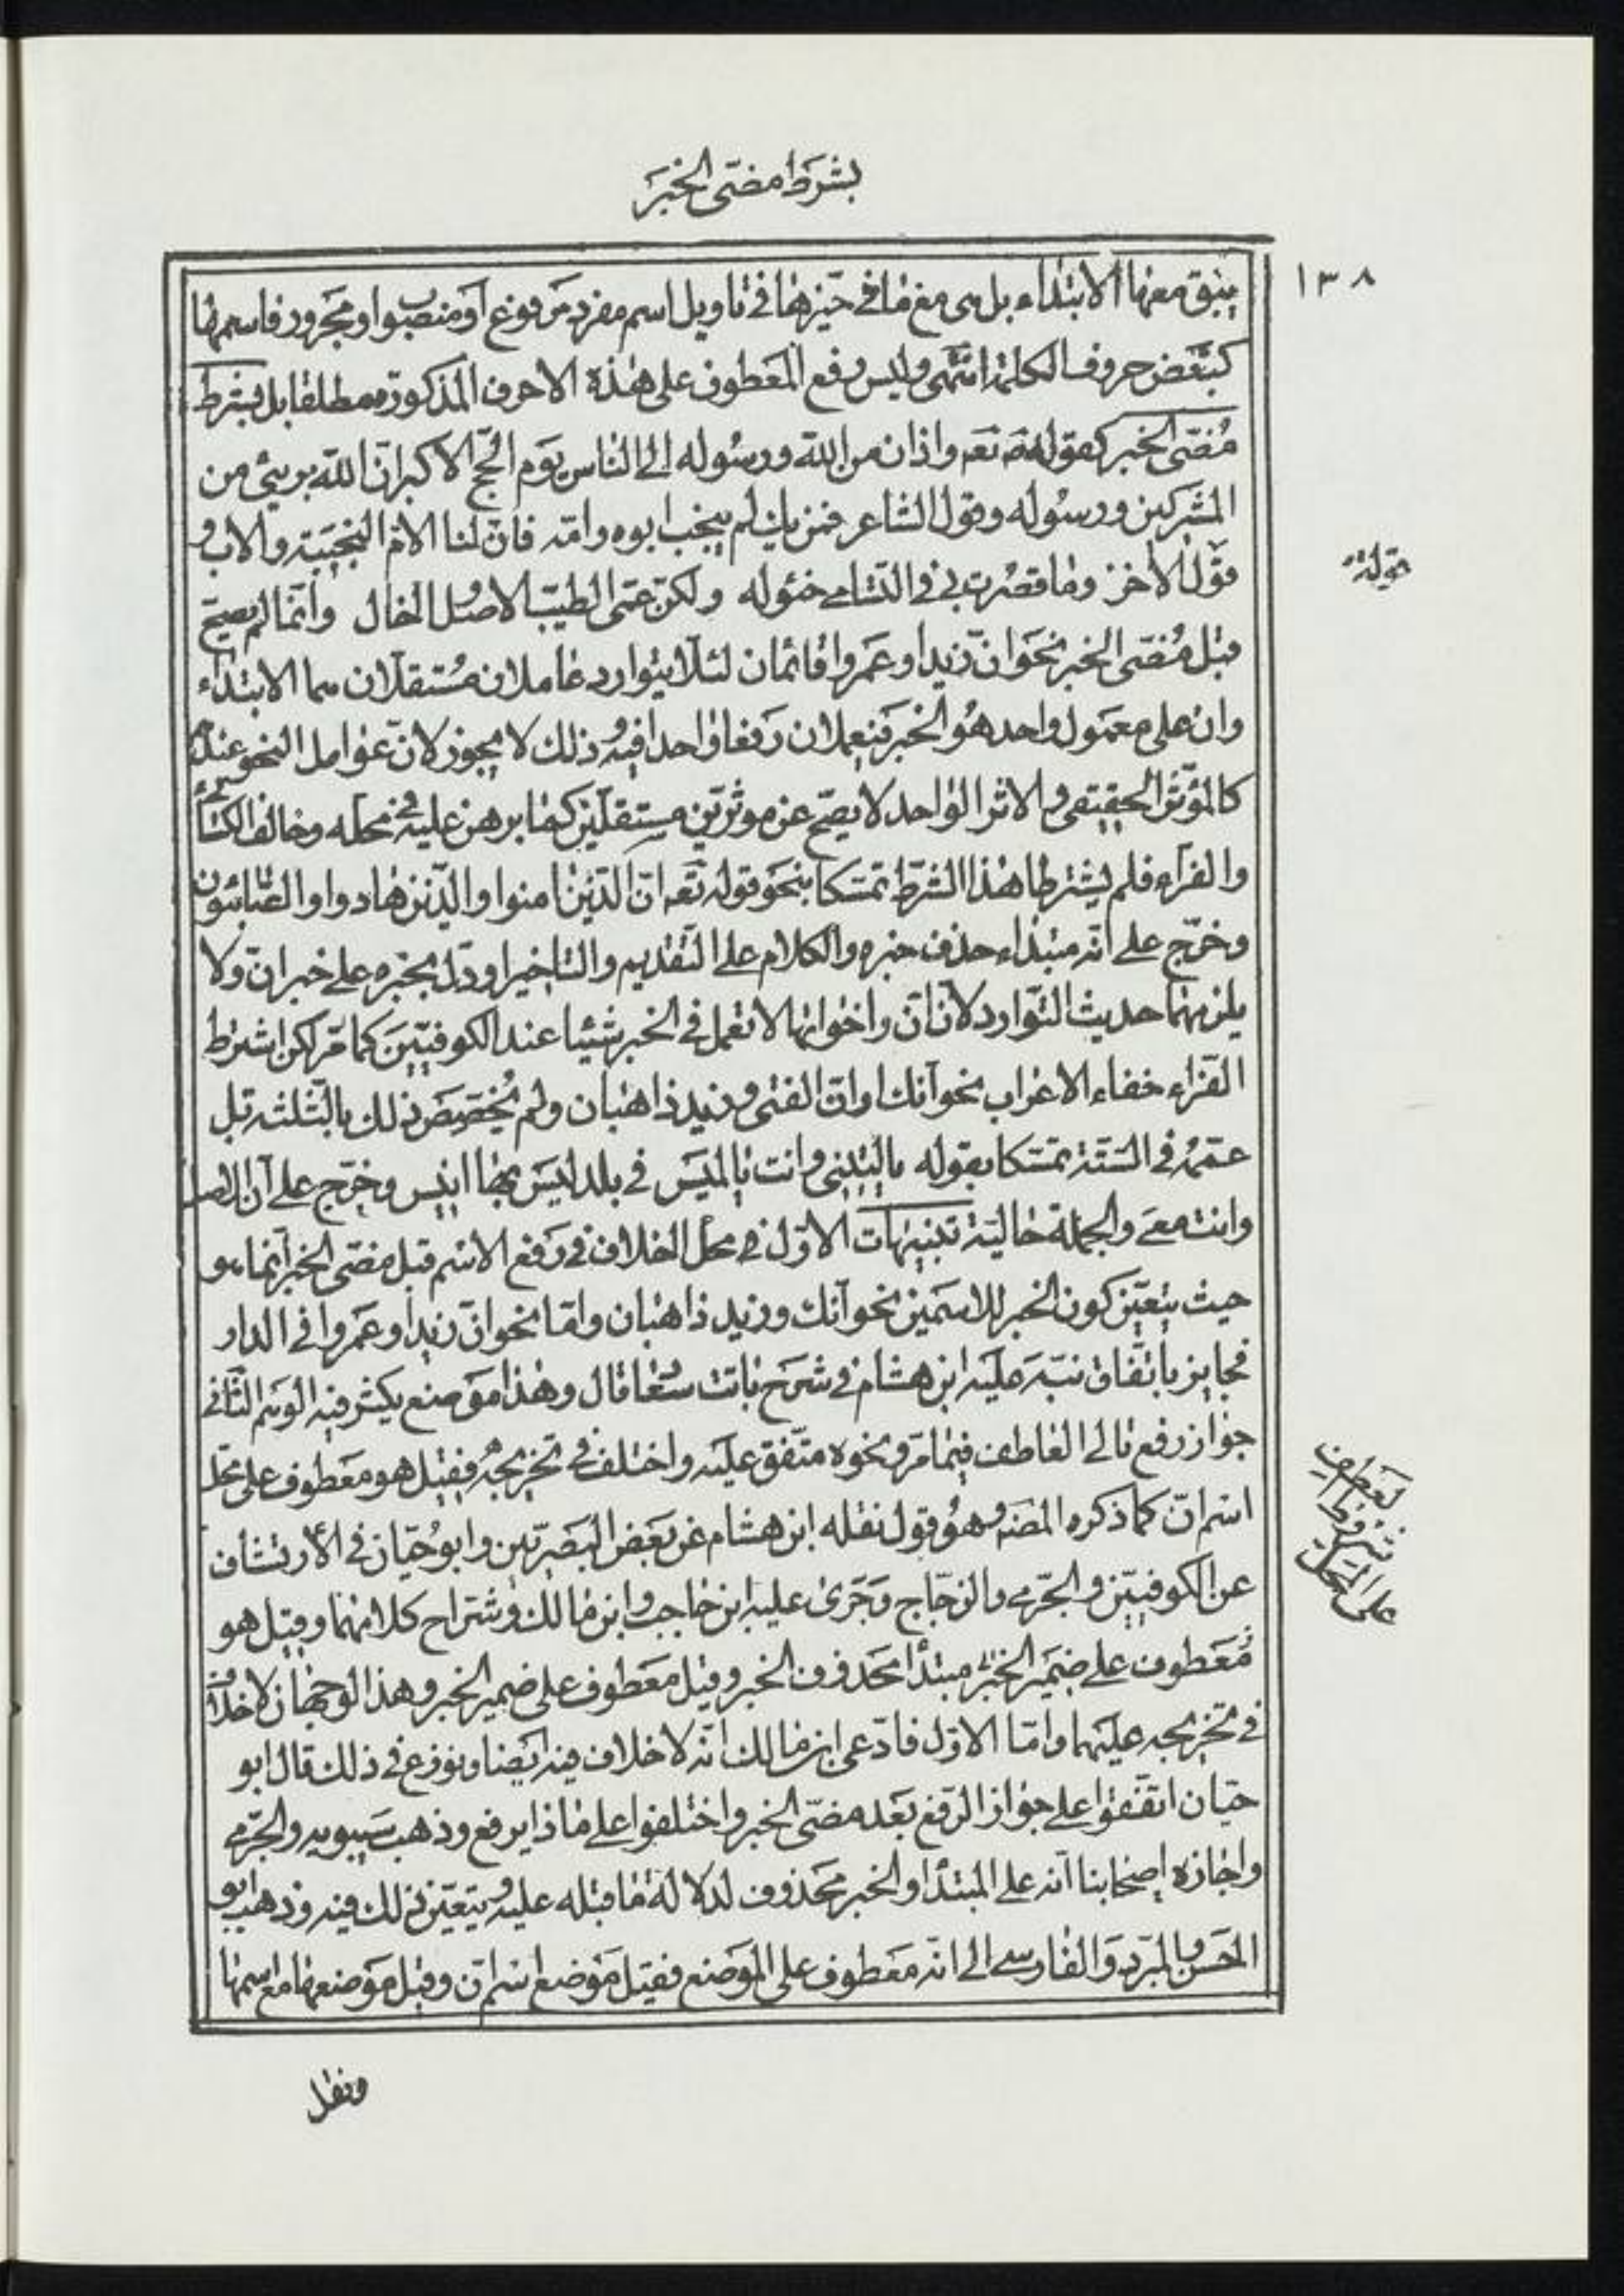 بشرط مضى الخبر
١٣٨
يبق معها الابتداء بل هى مع ما فى حيزها فى تاويل اسم مفرد مرفوع او منصوب او مجرور فاسمها
كبعض حروف الكلمة انتهى وليس رفع المعطوف على هذه الاحرف المذكورة مطلقا بل بشرط
مُضىّ الخبر كقوله تعه واذان من الله ورسوله الى الناس يوم الحج الاكبر انّ الله برئ من
المشركين ورسُوله وقول الشاعر فمن يك لم ينجب ابوه وامّه فانّ لنا الامّ النجيبة والاب و
قول الاخر وما قصُرت بى فى التسامى خئوله ولكنّ عمّى الطيب الاصل الخال وانّما لم يصحّ
قبل مُضىّ الخبر نحو انّ زيدا وعمروا قائمان لئلّا يتوارد عاملان مُستقلّان هما الابتداء
وان على معمول واحد هُو الخبر فيعملان رفعا واحدا فيه وذلك لا يجوز لانّ عوامل النحو عندهم
كالمؤثّر الحقيقى والاثر الواحد لا يصحّ عن موثرين مستقلّين كما برهن عليه فى محله وخالف الكسائى
والفرّاء فلم يشترطا هذا الشرط تمسّكا بنحو قوله تعه انّ الّذين امنوا والّذين هادوا والصّابئون
وخرّج على انّه مبتداء حذف خبره والكلام على التقديم والتاخير او دلّ بخبره على خبر انّ ولا
يلزمهما حديث التّوارد لانّ انّ واخواتها لا تعمل فى الخبر شيئا عند الكوفيّين كما مرّ لكن اشترط
الفرّاء خفاء الاعراب نحو انّك وانّ الفتى وزيد ذاهبان ولم يُخصّص ذلك بالثلثة بل
عمّمه فى الستّة تمسّكا بقوله ياليتنى وانت يالميس فى بلد ليس بها انيس وخرّج على انّ الاصل
وانت معى والجملة حاليّة تنبيهات الاوّل فى محل الخلاف فى رفع الاسم قبل مضى الخبر انّما هو
حيث يتعيّن كون الخبر للاسمين نحو انّك وزيد ذاهبان وامّا نحو انّ زيدا وعمروا فى الدار
فجايز باتّفاق نبّه عليه ابن هشام فى شرح بانت سُعا قال وهذا موضع يكثر فيه الوهم الثّانى
جواز رفع تالى العاطف فيما مرّ ونحوه متّفق عليه واختلف فى تخريجه فقيل هو معطوف على محل
اسم انّ كما ذكره المصه وهُو قول نقله ابن هشام عن بعض البصريّين وابو حيّان فى الارتشاف
عن الكوفيّين والجرمى والزجّاج وجَرى عليه ابن حاجب وابن مالك وشراح كلامهما وقيل هو
مُعطوف على ضمير الخبر مبتدأ محذوف الخبر وقيل معطوف على ضمير الخبر وهذا الوجهان لا خلاف
فى تخريجه عليهما وامّا الاوّل فادّعى ابن مالك انّه لا خلاف فيه ايضا ونوزع فى ذلك قال ابو
حيّان اتّفقوا على جواز الرّفع بعد مضىّ الخبر واختلفوا على ماذا يرفع وذهب سيبويه والجرمى
واجازه اصحابنا انّه على المبتدأ والخبر محذوف لدلالة ما قبله عليه ويتعيّن ذلك فيه وذهب ابو
الحسن والمبرّد والفارسى الى انّه معطوف على الموضع فقيل موضع اسم انّ وقيل موضعها مع اسمها
قوله
لعطف
شروط
على المحل
ونقل